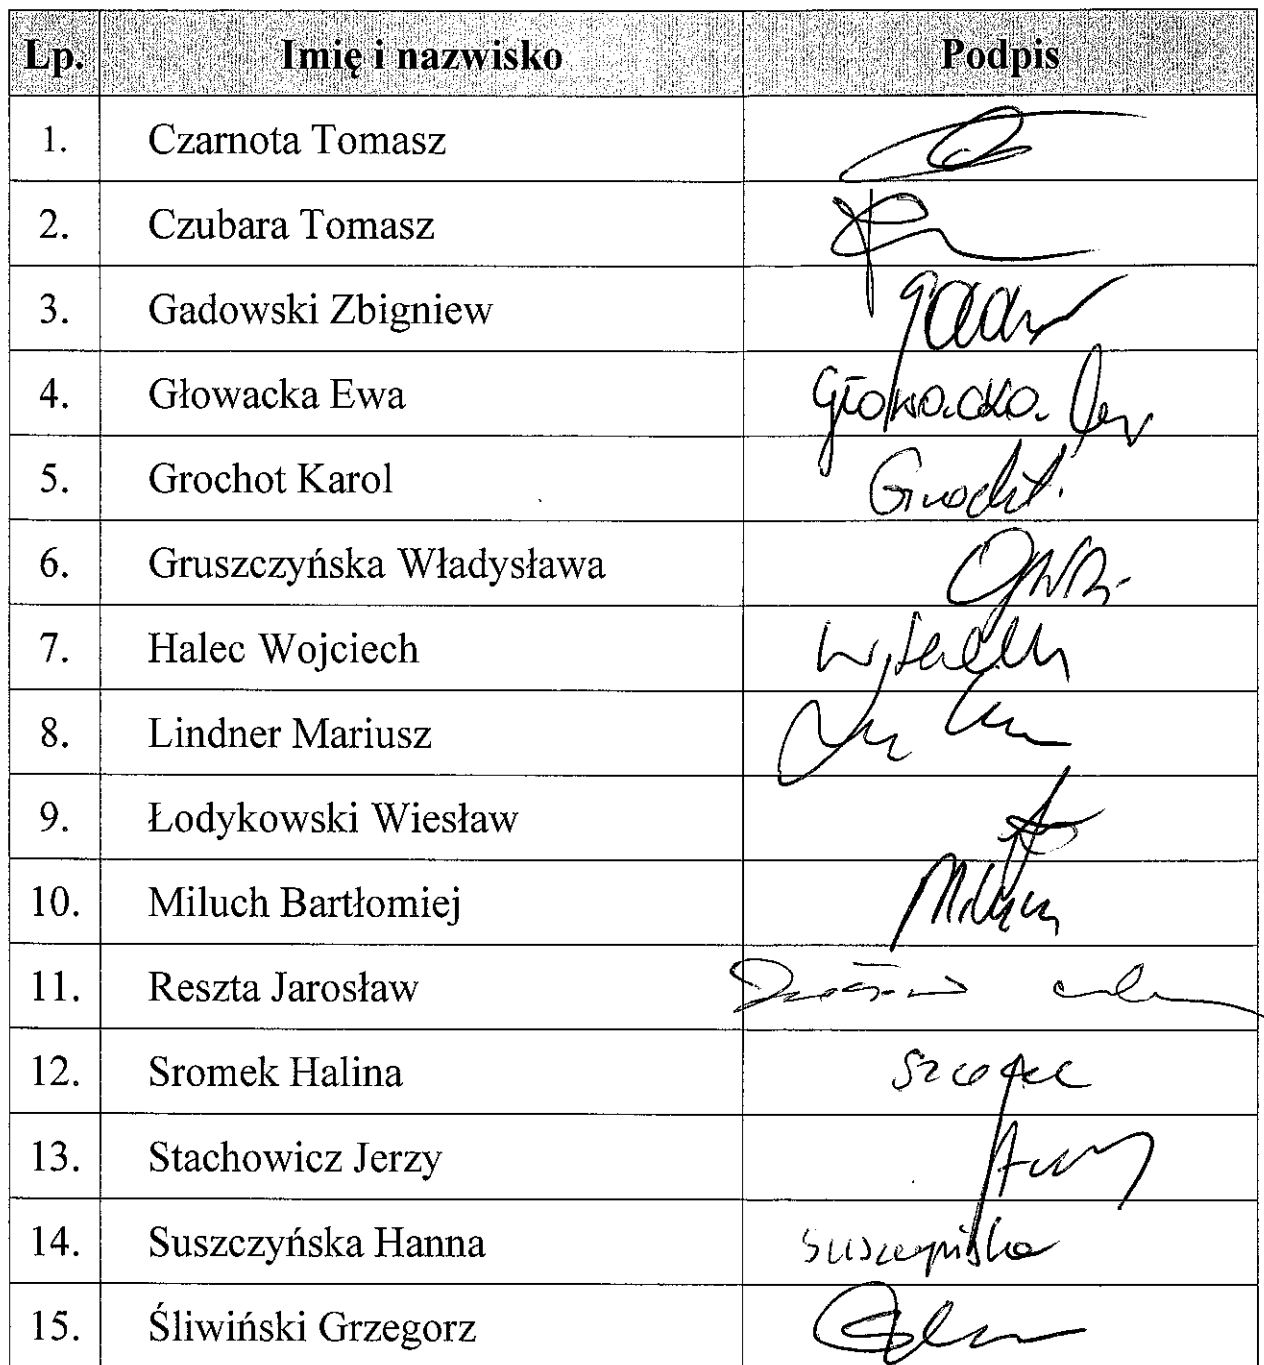 Lp. Imię i nazwisko Podpis
1. Czarnota Tomasz
2. Czubara Tomasz
3. Gadowski Zbigniew
4. Głowacka Ewa Głowacka Ewa
5. Grochot Karol Grochot
6. Gruszczyńska Władysława
7. Halec Wojciech
8. Lindner Mariusz
9. Łodykowski Wiesław
10. Miluch Bartłomiej Miluch
11. Reszta Jarosław
12. Sromek Halina
13. Stachowicz Jerzy
14. Suszczyńska Hanna Suszczyńska
15. Śliwiński Grzegorz